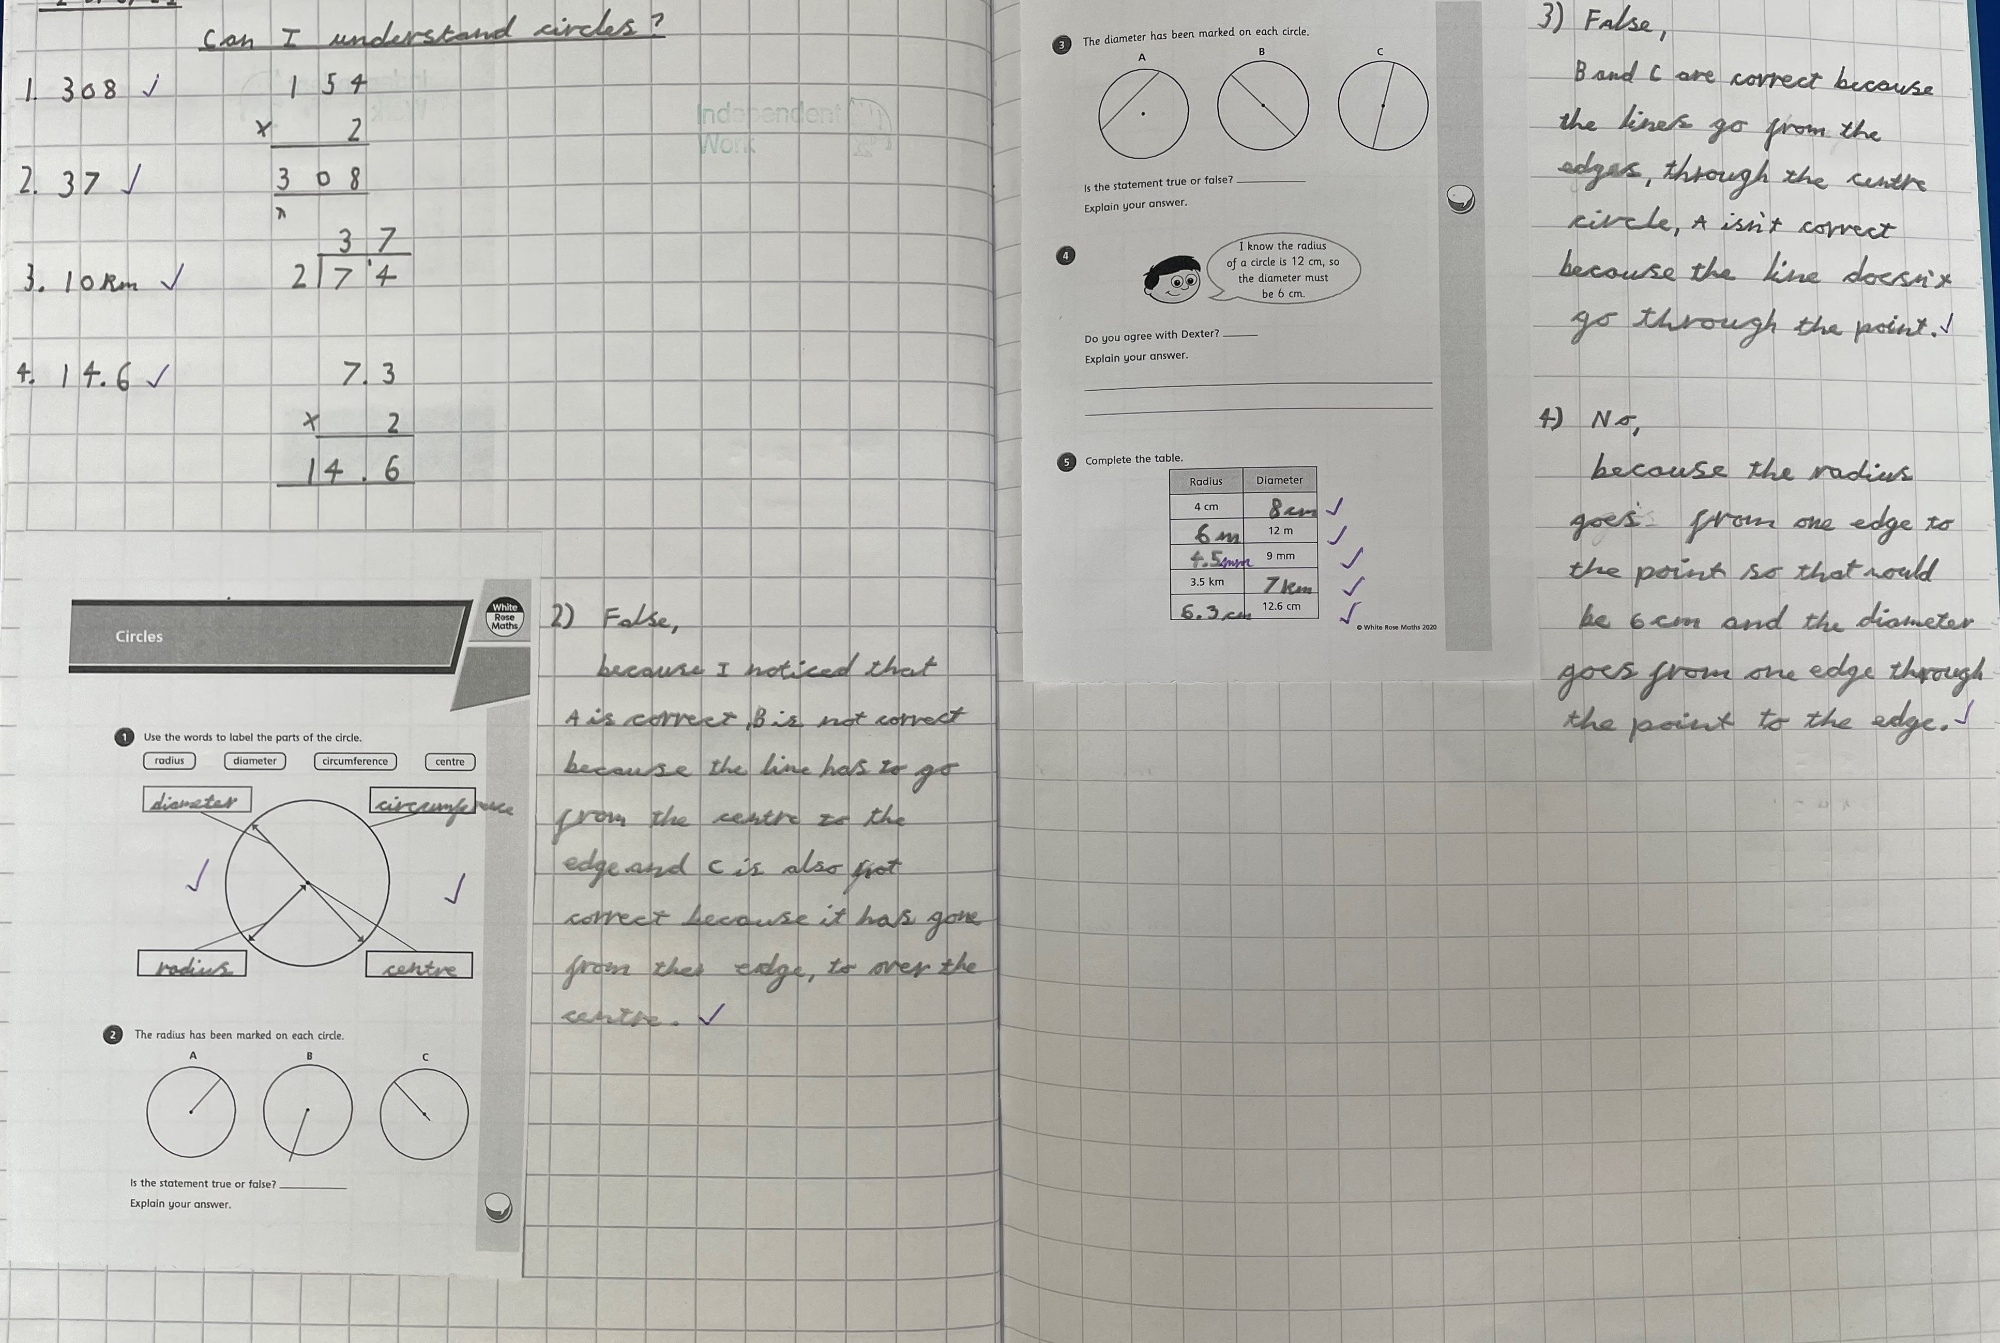 Can I understand circles?
1. 308 ✓
154
x 2
308
1
2. 37 ✓
37
2 7 14
3. 10km ✓
4. 14.6 ✓
7.3
x 2
14.6
Independent
Work
White
Rose
Maths
Circles
1 Use the words to label the parts of the circle.
radius diameter circumference centre
diameter circumference
radius centre
2 The radius has been marked on each circle.
A B C
Is the statement true or false?
Explain your answer.
2) False,
because I noticed that
A is correct, B is not correct
because the line has to go
from the centre to the
edge and C is also not
correct because it has gone
from the edge, to over the
centre. ✓
3 The diameter has been marked on each circle.
A B C
Is the statement true or false?
Explain your answer.
4 I know the radius
of a circle is 12 cm, so
the diameter must
be 6 cm.
Do you agree with Dexter?
Explain your answer.
5 Complete the table.
Radius Diameter
4 cm 8cm ✓
6m 12 m ✓
4.5mm 9 mm ✓
3.5 km 7km ✓
6.3cm 12.6 cm ✓
© White Rose Maths 2020
3) False,
B and C are correct because
the lines go from the
edges, through the centre
circle, A isn't correct
because the line doesn't
go through the point. ✓
4) No,
because the radius
goes from one edge to
the point so that would
be 6cm and the diameter
goes from one edge through
the point to the edge. ✓